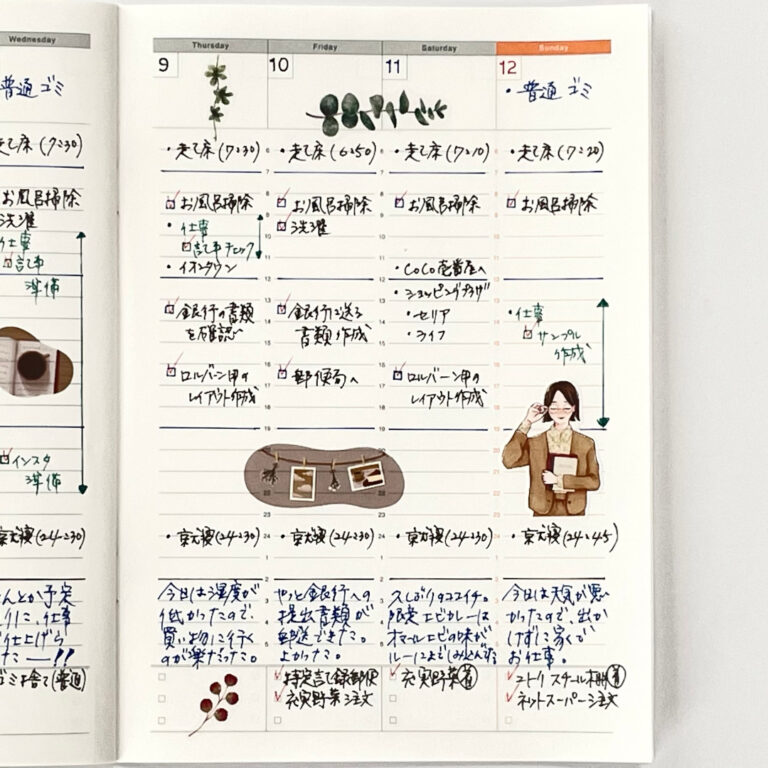 Wednesday
普通ゴミ
起床(7:30)
お風呂掃除
洗濯
仕事
記事
準備
インスタ
準備
就寝(24:30)
んとか予定
りに、仕事
仕上げら
たー!!
ゴミを捨て(普通)
Thursday
9
・起床(7:30)
お風呂掃除
・仕事
記事チェック
・イオンタウン
銀行の書類
を確認
ロルバーン用の
レイアウト作成
・就寝(24:30)
今日は湿度が
低かったので、
買い物に行く
のが楽だった。
Friday
10
・起床(6:50)
お風呂掃除
洗濯
銀行に送る
書類作成
郵便局へ
・就寝(24:30)
やっと銀行への
提出書類が
郵送できた。
よかった。
特定記録郵便
充実野菜注文
Saturday
11
・起床(7:10)
お風呂掃除
・CoCo壱番屋へ
・ショッピングプラザ
・セリア
・ライフ
ロルバーン用の
レイアウト作成
・就寝(24:30)
久しぶりのココイチ。
限定エビカレーは
オマールエビの味が
ルーによくしみ込んでた
充実野菜着
Sunday
12
・普通ゴミ
・起床(7:20)
お風呂掃除
・仕事
サンプル
作成
・就寝(24:45)
今日は天気が悪
かったので、出か
けずに家で
お仕事。
ニトリ スチール棚着
ネットスーパー注文